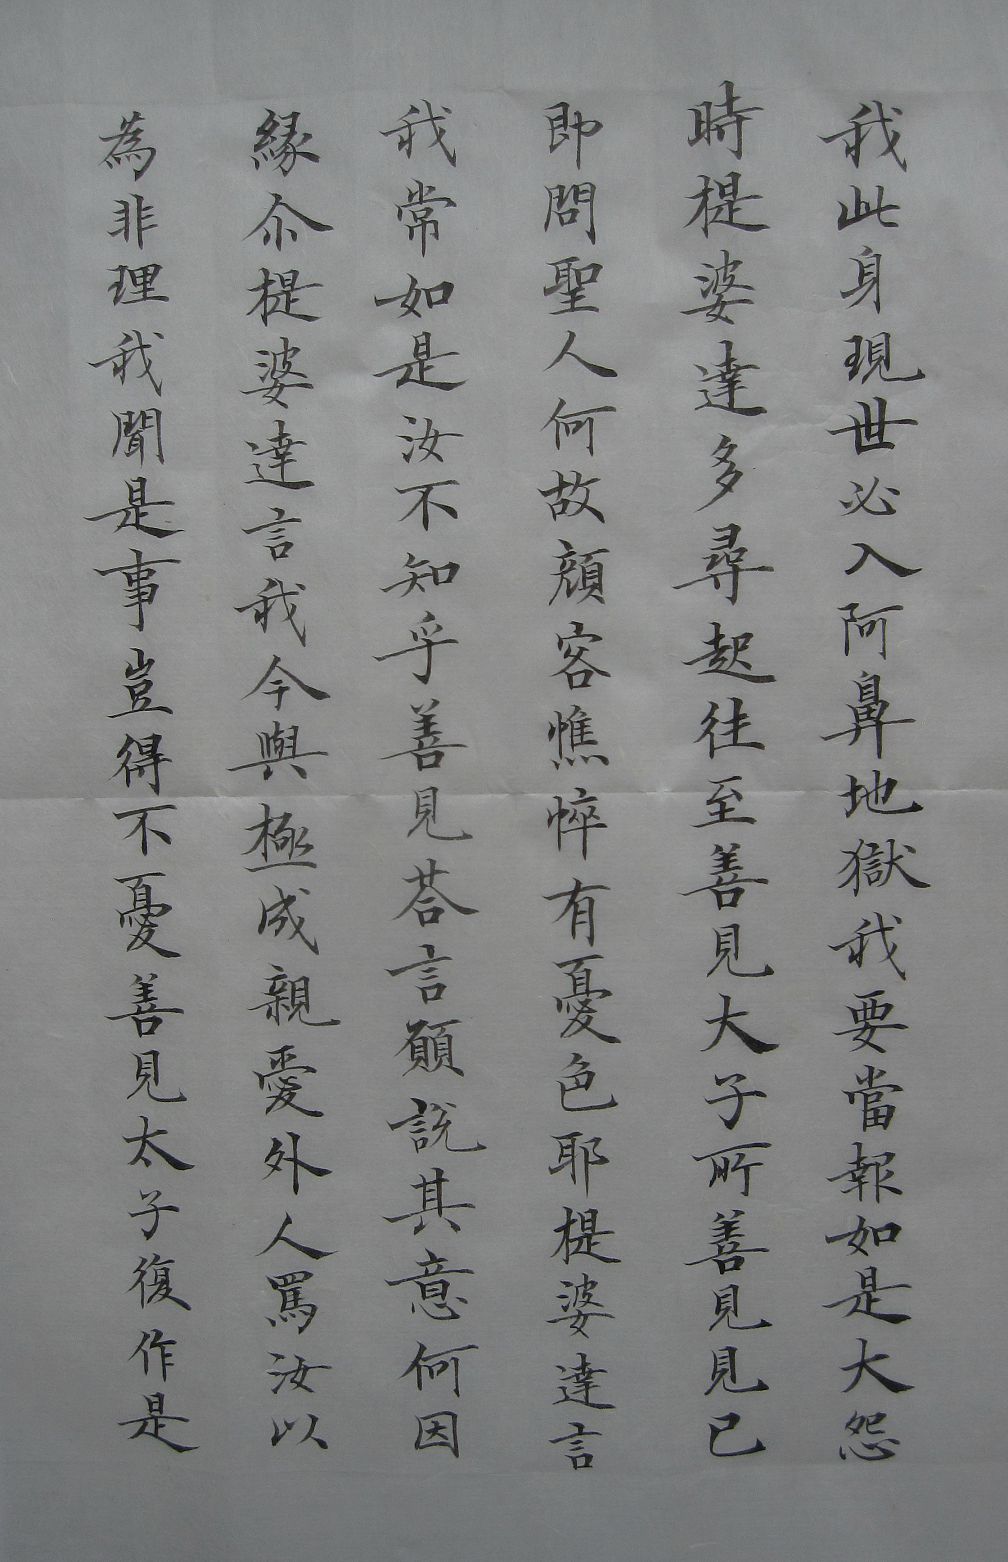 我此身現世必入阿鼻地獄我要當報如是大怨
時提婆達多尋起往至善見大子所善見見已
即問聖人何故顏容憔悴有憂色耶提婆達言
我常如是汝不知乎善見荅言願說其意何因
緣尒提婆達言我今與極成親愛外人罵汝以
為非理我聞是事豈得不憂善見太子復作是